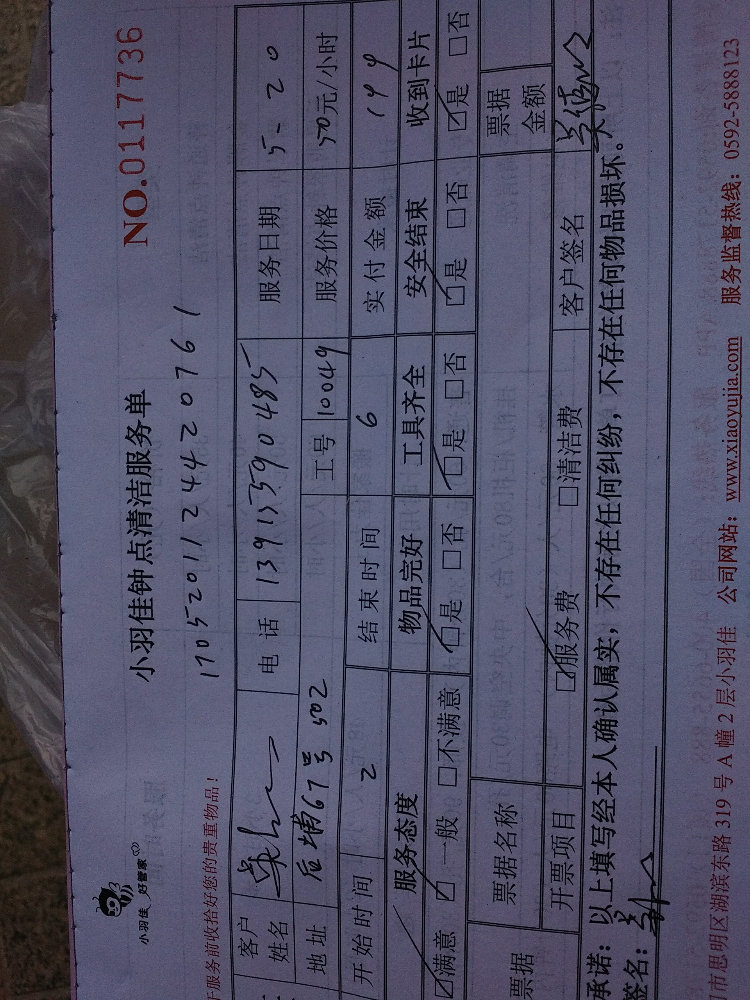 小羽佳 好管家
小羽佳钟点清洁服务单
NO.0117736
170520112442420761
于服务前收拾好您的贵重物品！
客户姓名 电话 13915590485 服务日期 5-20
地址 后埔67号502 工号 10049 服务价格 50元/小时
开始时间 2 结束时间 6 实付金额 199
服务态度 物品完好 工具齐全 安全结束 收到卡片
☑满意 ☐一般 ☐不满意 ☑是 ☐否 ☑是 ☐否 ☑是 ☐否 ☑是 ☐否
票据 票据名称 票据金额
开票项目 ☑服务费 ☐清洁费 客户签名
承诺：以上填写经本人确认属实，不存在任何纠纷，不存在任何物品损坏。
签名：
市思明区湖滨东路 319 号 A 幢 2 层小羽佳 公司网站：www.xiaoyujia.com 服务监督热线：0592-5888123